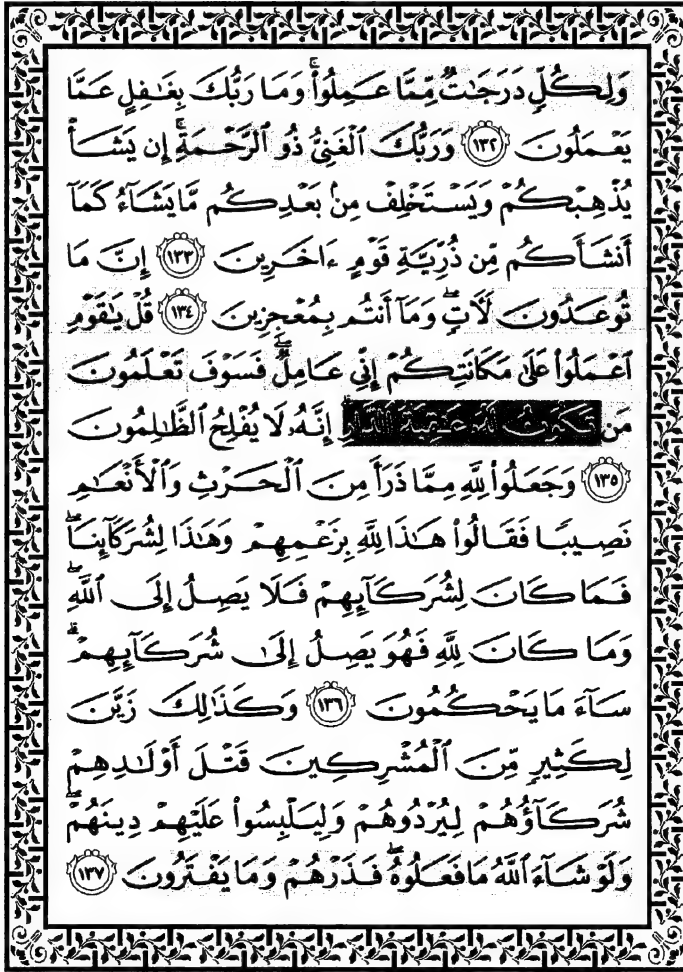 وَلِكُلٍّ دَرَجَٰتٌ مِّمَّا عَمِلُوا۟ ۚ وَمَا رَبُّكَ بِغَٰفِلٍ عَمَّا
يَعْمَلُونَ ﴿١٣٢﴾ وَرَبُّكَ ٱلْغَنِىُّ ذُو ٱلرَّحْمَةِ ۚ إِن يَشَأْ
يُذْهِبْكُمْ وَيَسْتَخْلِفْ مِنۢ بَعْدِكُم مَّا يَشَآءُ كَمَآ
أَنشَأَكُم مِّن ذُرِّيَّةِ قَوْمٍ ءَاخَرِينَ ﴿١٣٣﴾ إِنَّ مَا
تُوعَدُونَ لَـَٔاتٍ ۖ وَمَآ أَنتُم بِمُعْجِزِينَ ﴿١٣٤﴾ قُلْ يَٰقَوْمِ
ٱعْمَلُوا۟ عَلَىٰ مَكَانَتِكُمْ إِنِّى عَامِلٌ ۖ فَسَوْفَ تَعْلَمُونَ
مَن تَكُونُ لَهُۥ عَٰقِبَةُ ٱلدَّارِ ۗ إِنَّهُۥ لَا يُفْلِحُ ٱلظَّٰلِمُونَ
﴿١٣٥﴾ وَجَعَلُوا۟ لِلَّهِ مِمَّا ذَرَأَ مِنَ ٱلْحَرْثِ وَٱلْأَنْعَٰمِ
نَصِيبًا فَقَالُوا۟ هَٰذَا لِلَّهِ بِزَعْمِهِمْ وَهَٰذَا لِشُرَكَآئِنَا ۖ
فَمَا كَانَ لِشُرَكَآئِهِمْ فَلَا يَصِلُ إِلَى ٱللَّهِ ۖ
وَمَا كَانَ لِلَّهِ فَهُوَ يَصِلُ إِلَىٰ شُرَكَآئِهِمْ ۗ
سَآءَ مَا يَحْكُمُونَ ﴿١٣٦﴾ وَكَذَٰلِكَ زَيَّنَ
لِكَثِيرٍ مِّنَ ٱلْمُشْرِكِينَ قَتْلَ أَوْلَٰدِهِمْ
شُرَكَآؤُهُمْ لِيُرْدُوهُمْ وَلِيَلْبِسُوا۟ عَلَيْهِمْ دِينَهُمْ ۖ
وَلَوْ شَآءَ ٱللَّهُ مَا فَعَلُوهُ ۖ فَذَرْهُمْ وَمَا يَفْتَرُونَ ﴿١٣٧﴾